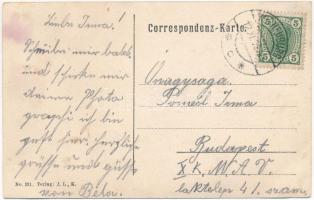 Liebe Irma!
Schreibe mir bald,
und schicke mir
deine Photo
graphi ich bin
gest sehr herzliche
grüsse und küsse
von Bela.
No. 221. Verlag: J. L., K.
Correspondenz-Karte.
5 5
Önagysaga
Irma
Budapest
X. k. M.A.V.
laktelep 41. szam.